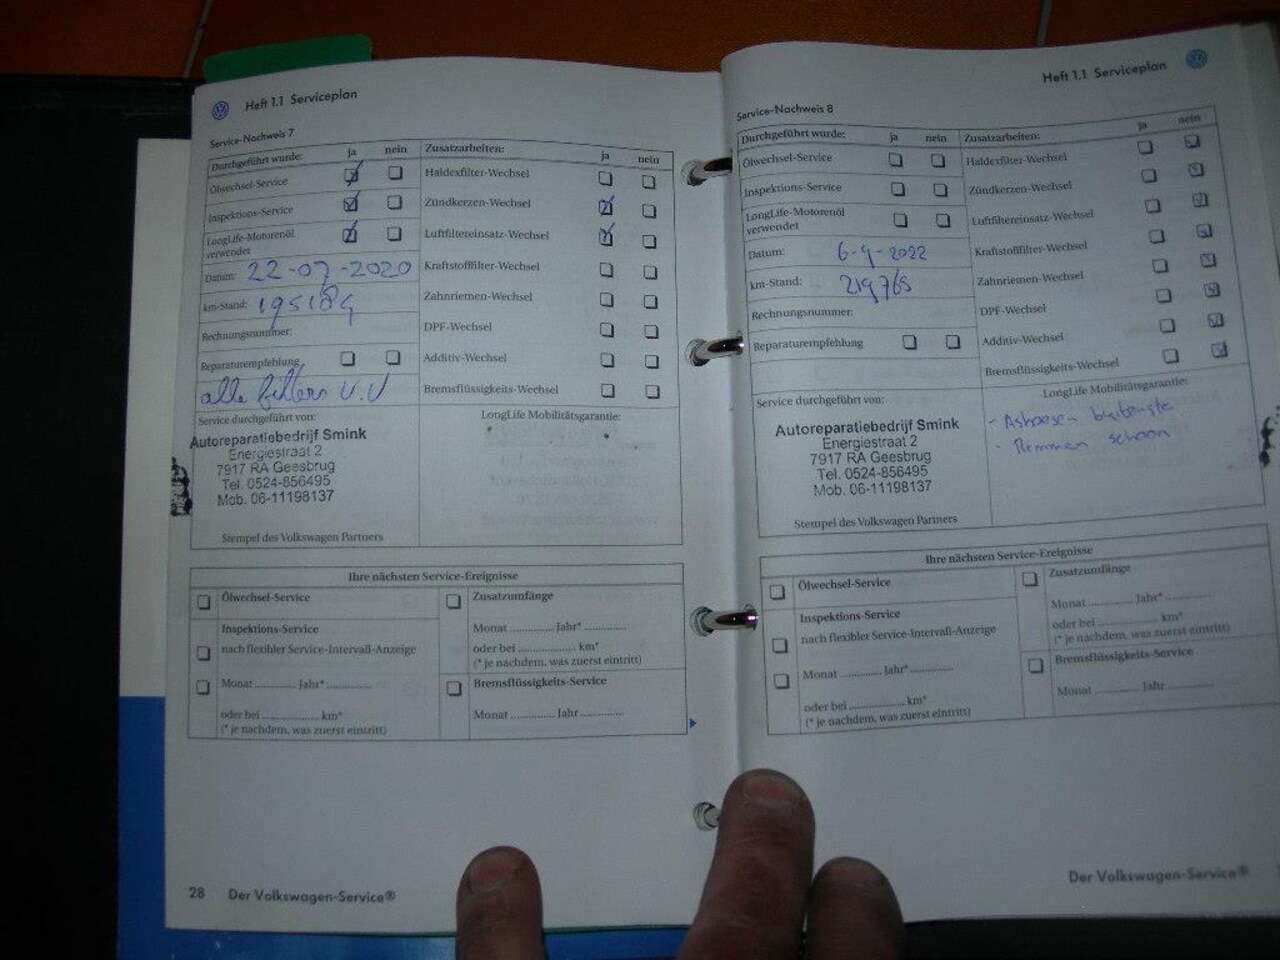 Heft 1.1 Serviceplan
Service-Nachweis 7
Durchgeführt wurde: ja nein
Ölwechsel-Service
Inspektions-Service
LongLife-Motorenöl
verwendet
Datum: 22-07-2020
km-Stand: 195184
Rechnungsnummer:
Reparaturempfehlung
alle filters V.V
Service durchgeführt von:
Autoreparatiebedrijf Smink
Energiestraat 2
7917 RA Geesbrug
Tel. 0524-856495
Mob. 06-11198137
Stempel des Volkswagen Partners
Zusatzarbeiten: ja nein
Haldexfilter-Wechsel
Zündkerzen-Wechsel
Luftfiltereinsatz-Wechsel
Kraftstofffilter-Wechsel
Zahnriemen-Wechsel
DPF-Wechsel
Additiv-Wechsel
Bremsflüssigkeits-Wechsel
LongLife Mobilitätsgarantie:
Ihre nächsten Service-Ereignisse
Ölwechsel-Service
Inspektions-Service
nach flexibler Service-Intervall-Anzeige
Monat ............. Jahr* .............
oder bei ..................... km*
(* je nachdem, was zuerst eintritt)
Zusatzumfänge
Monat ............. Jahr* .............
oder bei ..................... km*
(* je nachdem, was zuerst eintritt)
Bremsflüssigkeits-Service
Monat ............. Jahr .............
28 Der Volkswagen-Service®
Heft 1.1 Serviceplan
Service-Nachweis 8
Durchgeführt wurde: ja nein
Ölwechsel-Service
Inspektions-Service
LongLife-Motorenöl
verwendet
Datum: 6-9-2022
km-Stand: 219765
Rechnungsnummer:
Reparaturempfehlung
Service durchgeführt von:
Autoreparatiebedrijf Smink
Energiestraat 2
7917 RA Geesbrug
Tel. 0524-856495
Mob. 06-11198137
Stempel des Volkswagen Partners
Zusatzarbeiten: ja nein
Haldexfilter-Wechsel
Zündkerzen-Wechsel
Luftfiltereinsatz-Wechsel
Kraftstofffilter-Wechsel
Zahnriemen-Wechsel
DPF-Wechsel
Additiv-Wechsel
Bremsflüssigkeits-Wechsel
LongLife Mobilitätsgarantie:
- Remmen schoon
Ihre nächsten Service-Ereignisse
Ölwechsel-Service
Inspektions-Service
nach flexibler Service-Intervall-Anzeige
Monat ............. Jahr* .............
oder bei ..................... km*
(* je nachdem, was zuerst eintritt)
Zusatzumfänge
Monat ............. Jahr* .............
oder bei ..................... km*
(* je nachdem, was zuerst eintritt)
Bremsflüssigkeits-Service
Monat ............. Jahr .............
Der Volkswagen-Service®